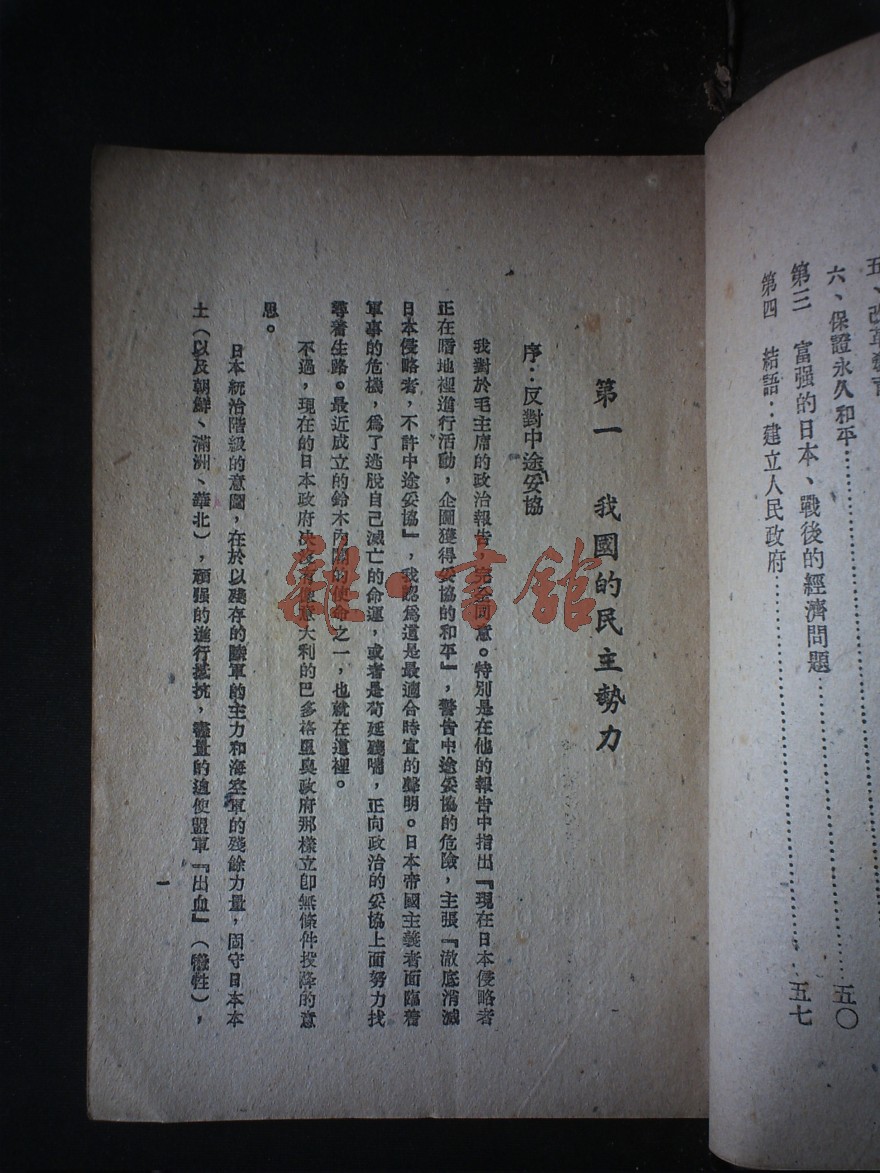 五、改革教育
六、保證永久和平……五〇
第三 富强的日本、戰後的經濟問題……五七
第四 結語：建立人民政府……
第一 我國的民主勢力
序：反對中途妥協
我對於毛主席的政治報告，完全同意。特別是在他的報告中指出『現在日本侵略者
正在暗地裡進行活動，企圖獲得妥協的和平』，警告中途妥協的危險，主張『澈底消滅
日本侵略者，不許中途妥協』，我認爲這是最適合時宜的聲明。日本帝國主義者面臨着
軍事的危機，爲了逃脫自己滅亡的命運，或者是苟延殘喘，正向政治的妥協上面努力找
尋着生路。最近成立的鈴木內閣的使命之一，也就在這裡。
不過，現在的日本政府决沒有像意大利的巴多格里奥政府那樣立即無條件投降的意
思。
日本統治階級的意圖，在於以殘存的陸軍的主力和海空軍的殘餘力量，固守日本本
土（以及朝鮮、滿洲、華北），頑强的進行抵抗，盡量的迫使盟軍『出血』（犧牲），
一
雜·書館